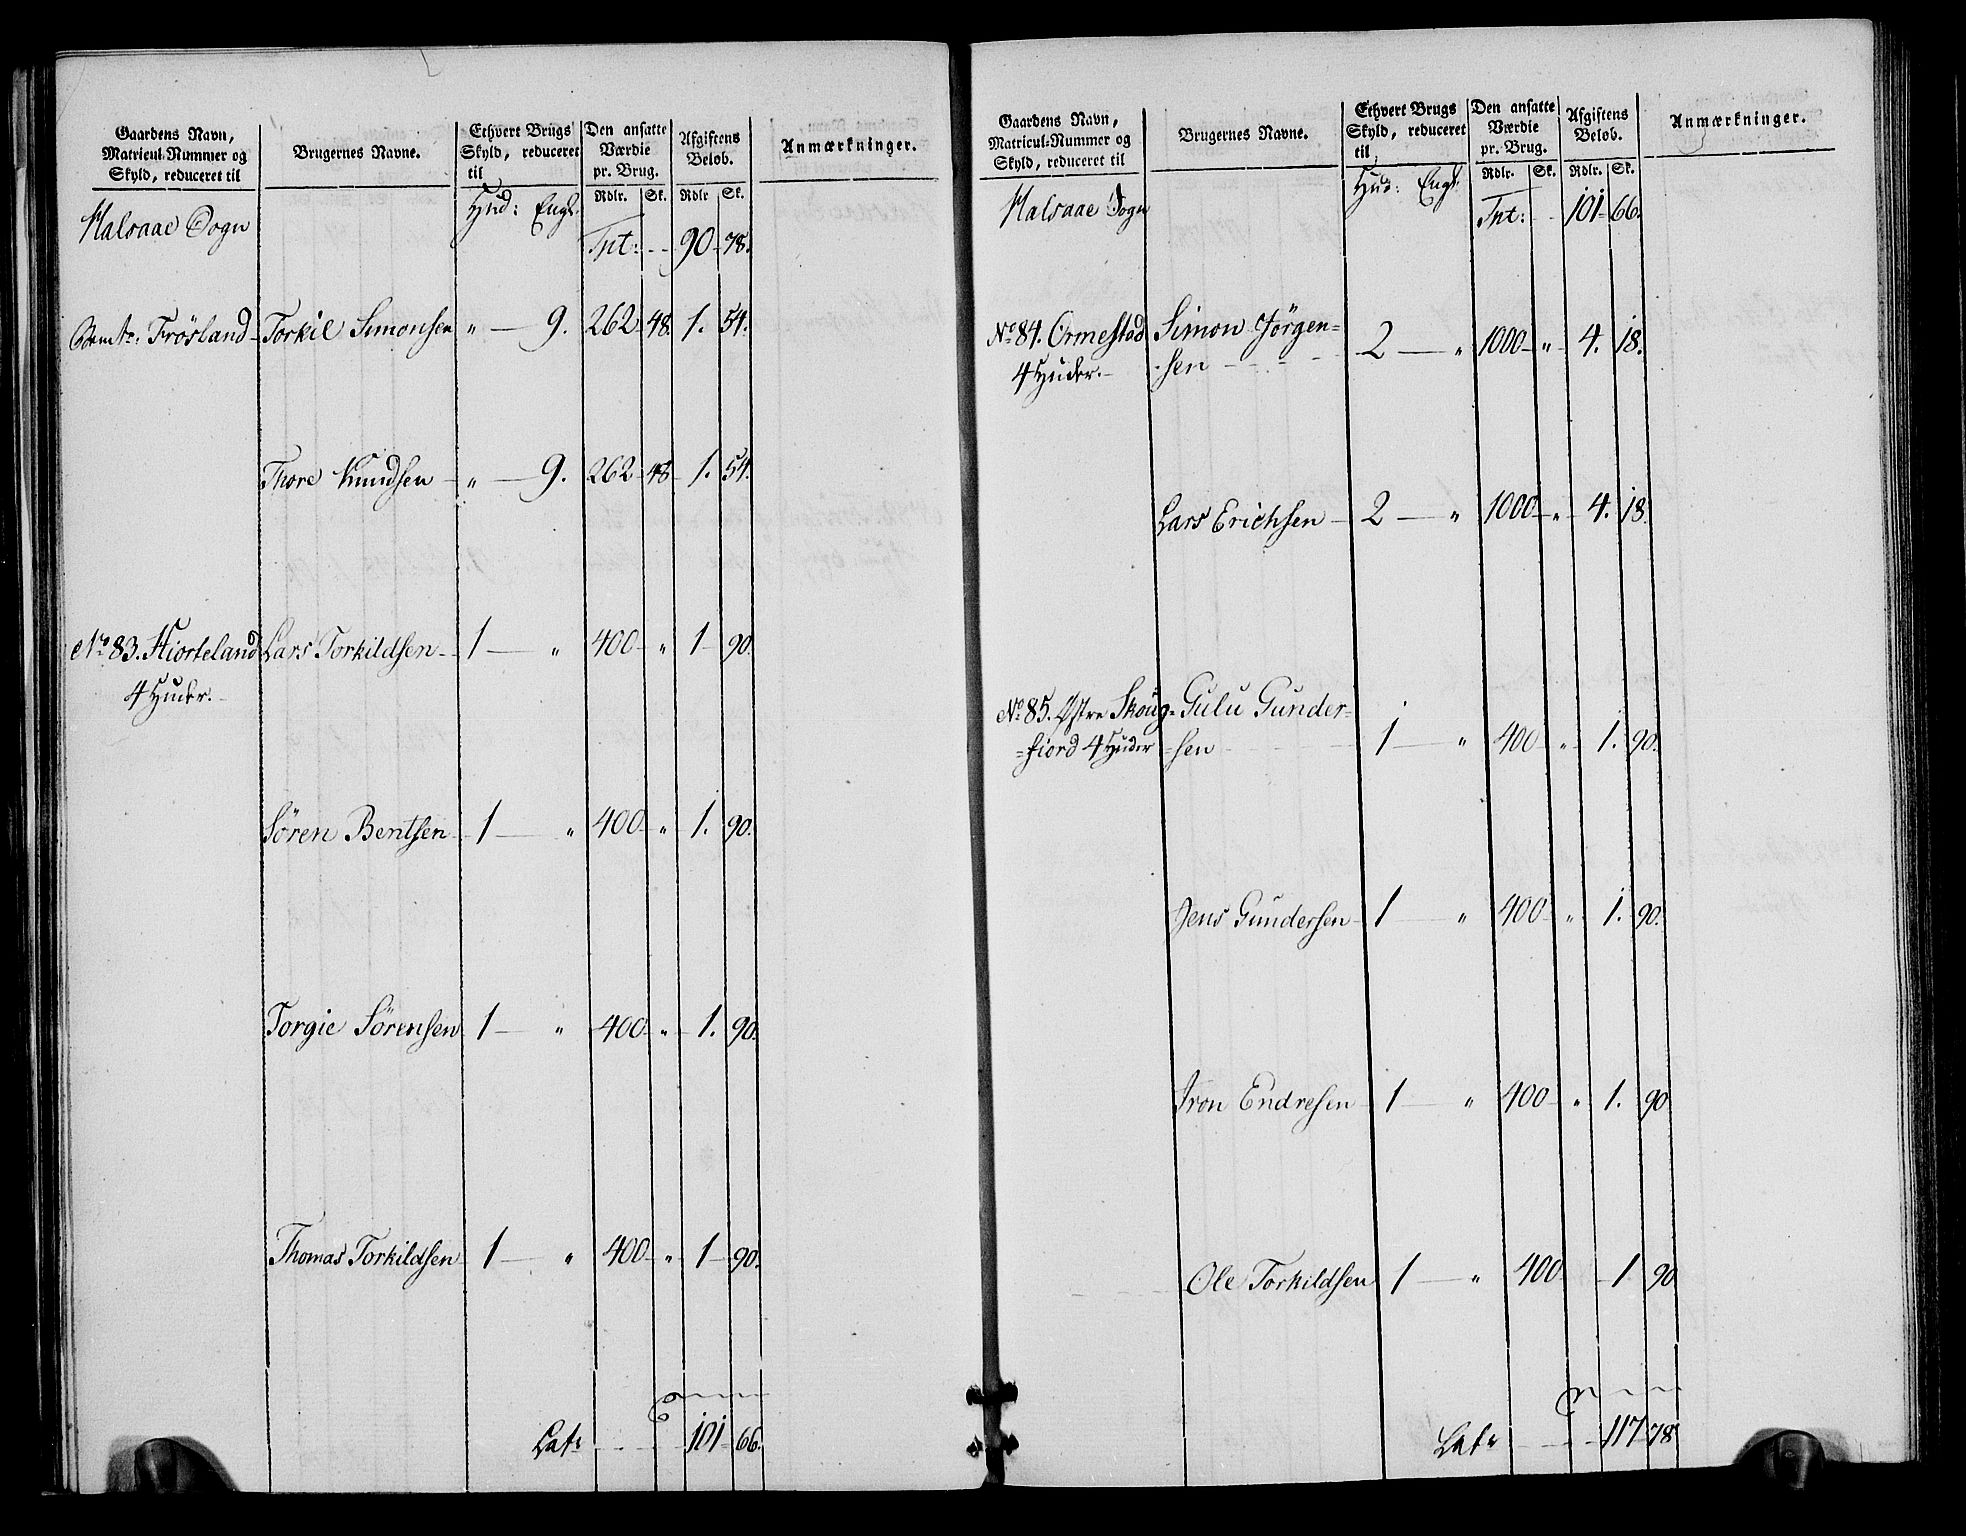 Gaardens Navn,
Matricul-Nummer og
Skyld, reduceret til
Brugernes Navne.
Ethvert Brugs
Skyld, reduceret
til
Den ansatte
Værdie
pr. Brug.
Afgiftens
Beløb.
Anmærkninger.
Rdlr. Sk. Rdlr Sk.
Halsaae Sogn Hud: Engl:
Tnt: 90 78.
Trösland Torkil Simonsen „ 9. 262 48. 1. 54.
Thore Knudsen „ 9. 262 48 1. 54.
No 83. Hiorteland Lars Torkildsen 1 „ 400 „ 1 90.
4 Huder.
Sören Bentsen 1 „ 400 „ 1. 90.
Torgie Sörensen 1 „ 400 „ 1. 90.
Thomas Torkildsen 1 „ 400 „ 1 90.
Lats 101 66.
Gaardens Navn,
Matricul-Nummer og
Skyld, reduceret til
Brugernes Navne.
Ethvert Brugs
Skyld, reduceret
til
Den ansatte
Værdie
pr. Brug.
Afgiftens
Beløb.
Anmærkninger.
Rdlr. Sk. Rdlr. Sk.
Halsaae Sogn Hud: Engl:
Tnt: 101 66.
No 84. Ormestad Simon Jörgen=
4 Huder. sen 2 „ 1000 „ 4. 18.
Lars Erichsen 2 „ 1000 „ 4. 18.
No 85. Østre Skoug= Gulu Gunder=
=fiord 4 Huder =sen 1 „ 400 „ 1. 90.
Jens Gundersen 1 „ 400 „ 1. 90.
Iron Endresen 1 „ 400 „ 1. 90
Ole Torkildsen 1 „ 400 1 90
Lats 117 78